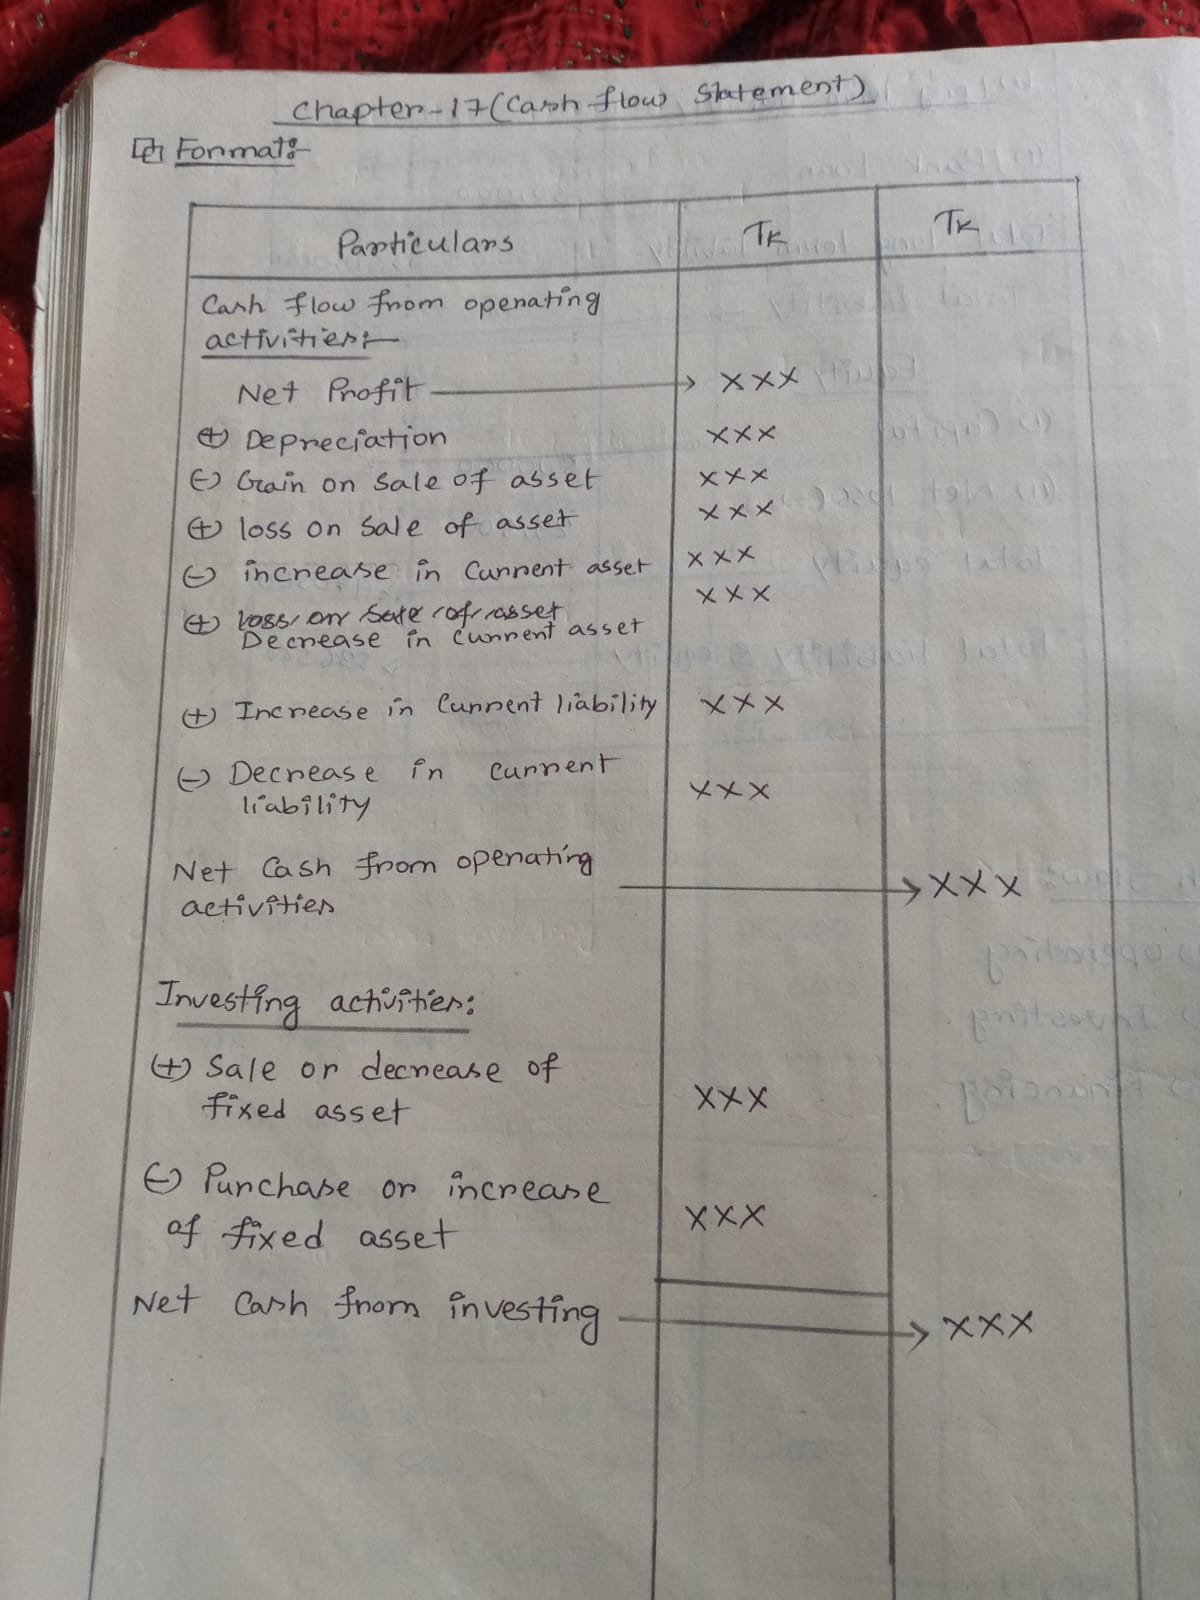 Chapter-17 (Cash flow Statement)
Format:-
Particulars Tk Tk
Cash flow from operating
activities:-
Net Profit → xxx
(+) Depreciation xxx
(-) Gain on sale of asset xxx
(+) loss on sale of asset xxx
(-) increase in Current asset xxx
(+) loss on sale of asset xxx
Decrease in current asset
(+) Increase in Current liability xxx
(-) Decrease in current
liability xxx
Net Cash from operating
activities → xxx
Investing activities:
(+) Sale or decrease of
fixed asset xxx
(-) Purchase or increase
of fixed asset xxx
Net Cash from investing → xxx